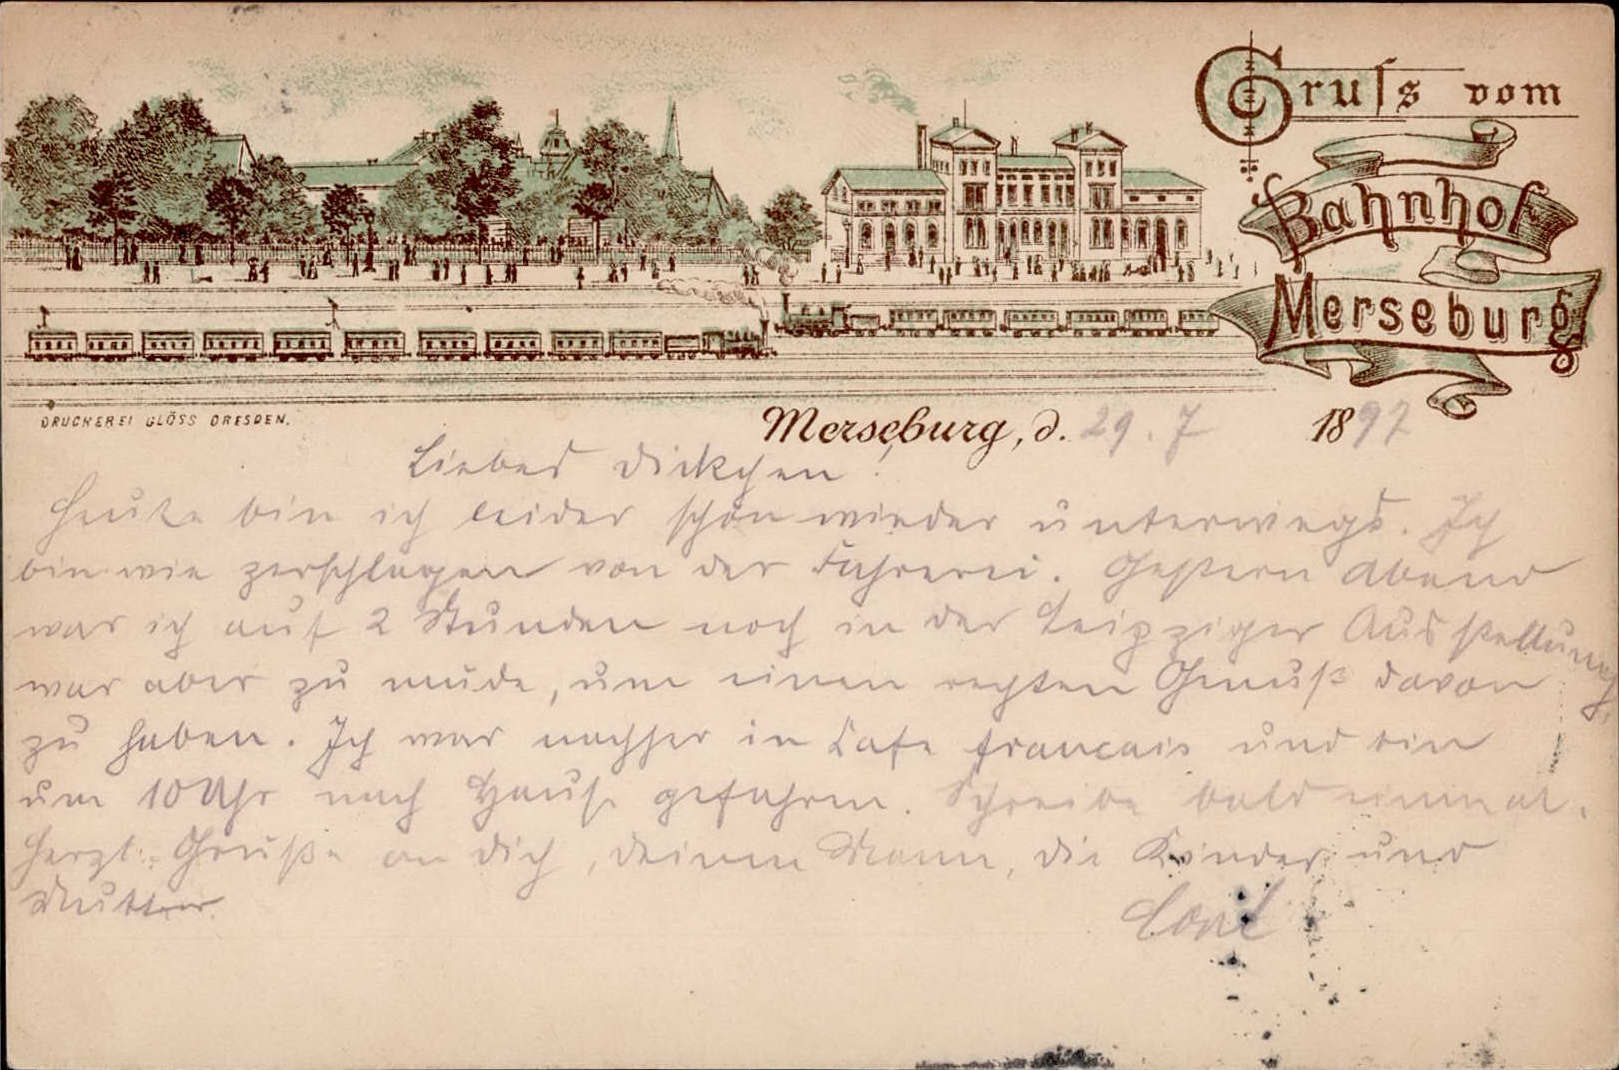 Gruſs vom
Bahnhof
Merseburg
DRUCKEREI GLÖSS DRESDEN.
Merseburg, d. 29. 7 1897
Liebes Dickchen!
Heute bin ich leider schon wieder unterwegs. Ich
bin wie zerschlagen von der Fahrerei. Gestern Abend
war ich auf 2 Stunden noch in der Leipziger Ausstellung,
war aber zu müde, um einen rechten Genuß davon
zu haben. Ich war nachher in Cafe francais und bin
um 10 Uhr nach Hause gefahren. Schreibe bald einmal.
Herzl. Grüße an Dich, deinen Mann, die Kinder und
Mutter.